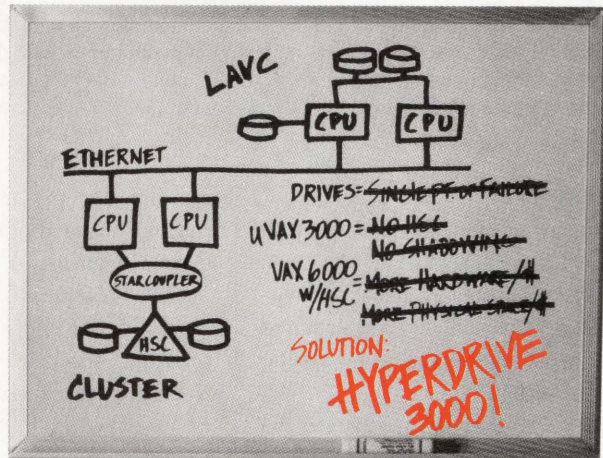 LAVC
CPU
CPU
ETHERNET
CPU
CPU
STARCOUPLER
HSC
CLUSTER
DRIVES = SINGLE PT. OF FAILURE
UVAX 3000 = NO HSC
NO SHADOWING
VAX 6000
W/HSC = MORE HARDWARE/$
MORE PHYSICAL SPACE/$
SOLUTION:
HYPERDRIVE
3000!